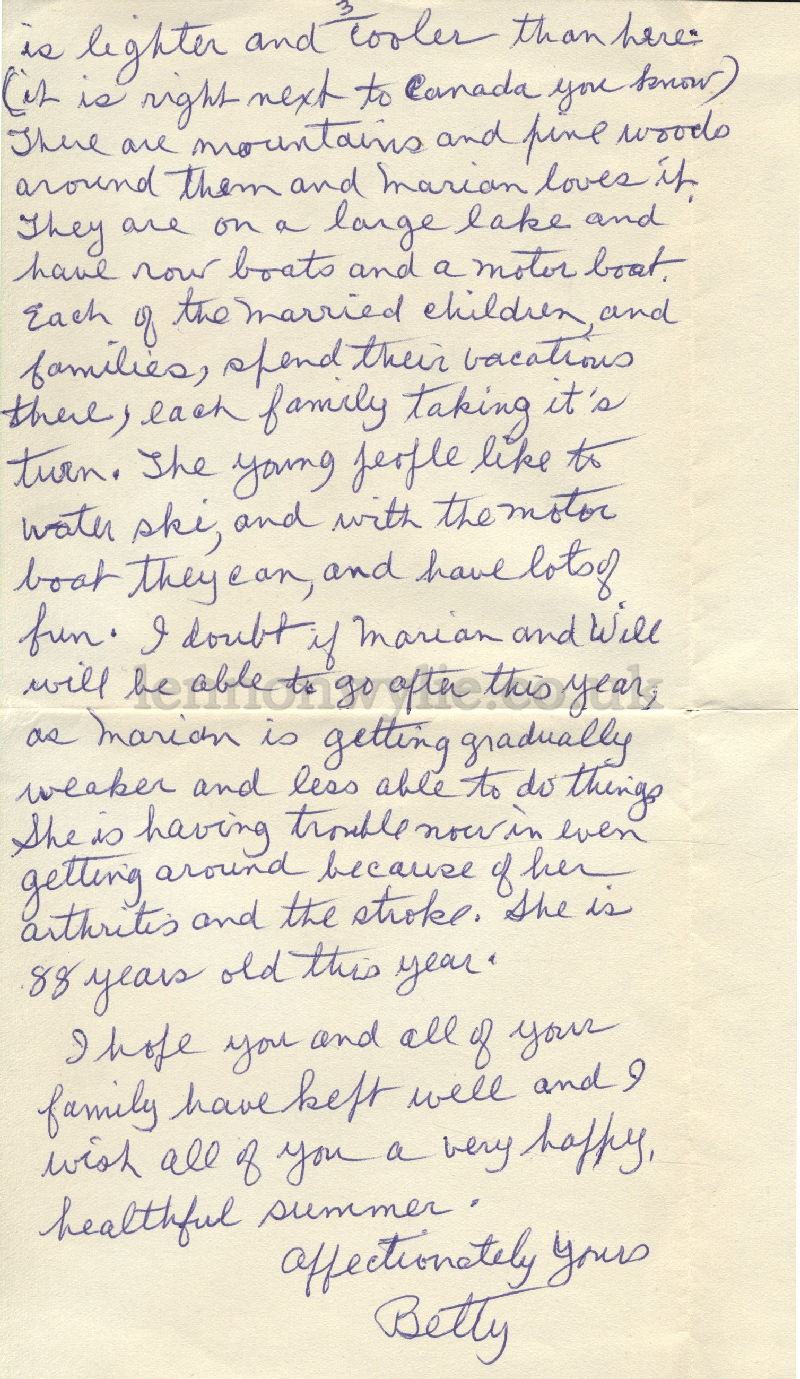 3
is lighter and cooler than here.
(it is right next to Canada you know)
There are mountains and pine woods
around them and Marian loves it.
They are on a large lake and
have row boats and a motor boat.
Each of the married children, and
families, spend their vacations
there, each family taking it's
turn. The young people like to
water ski, and with the motor
boat they can, and have lots of
fun. I doubt if Marian and Will
will be able to go after this year,
lennonwylie.co.uk
as Marian is getting gradually
weaker and less able to do things
She is having trouble now in even
getting around because of her
arthritis and the stroke. She is
88 years old this year.
I hope you and all of your
family have kept well and I
wish all of you a very happy,
healthful summer.
Affectionately Yours
Betty